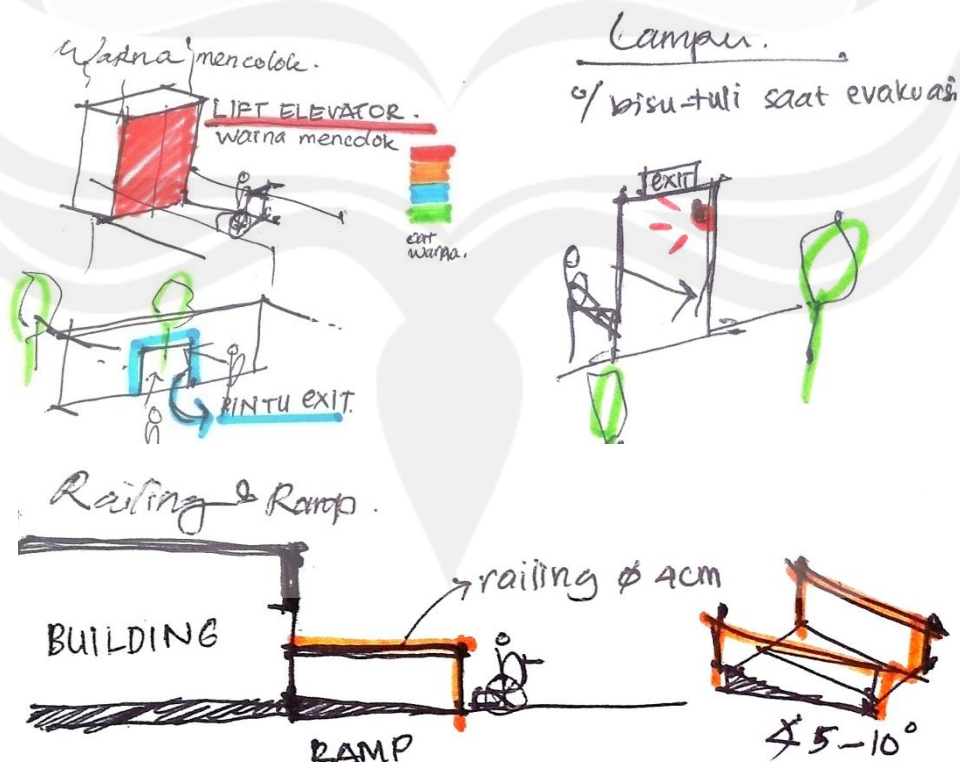 Warna mencolok.
LIFT ELEVATOR.
warna mencolok
cat
warna.
PINTU EXIT.
Lampu.
u/ bisu-tuli saat evakuasi
exit
Railing & Ramp.
railing ø 4cm
BUILDING
RAMP
∡ 5-10°